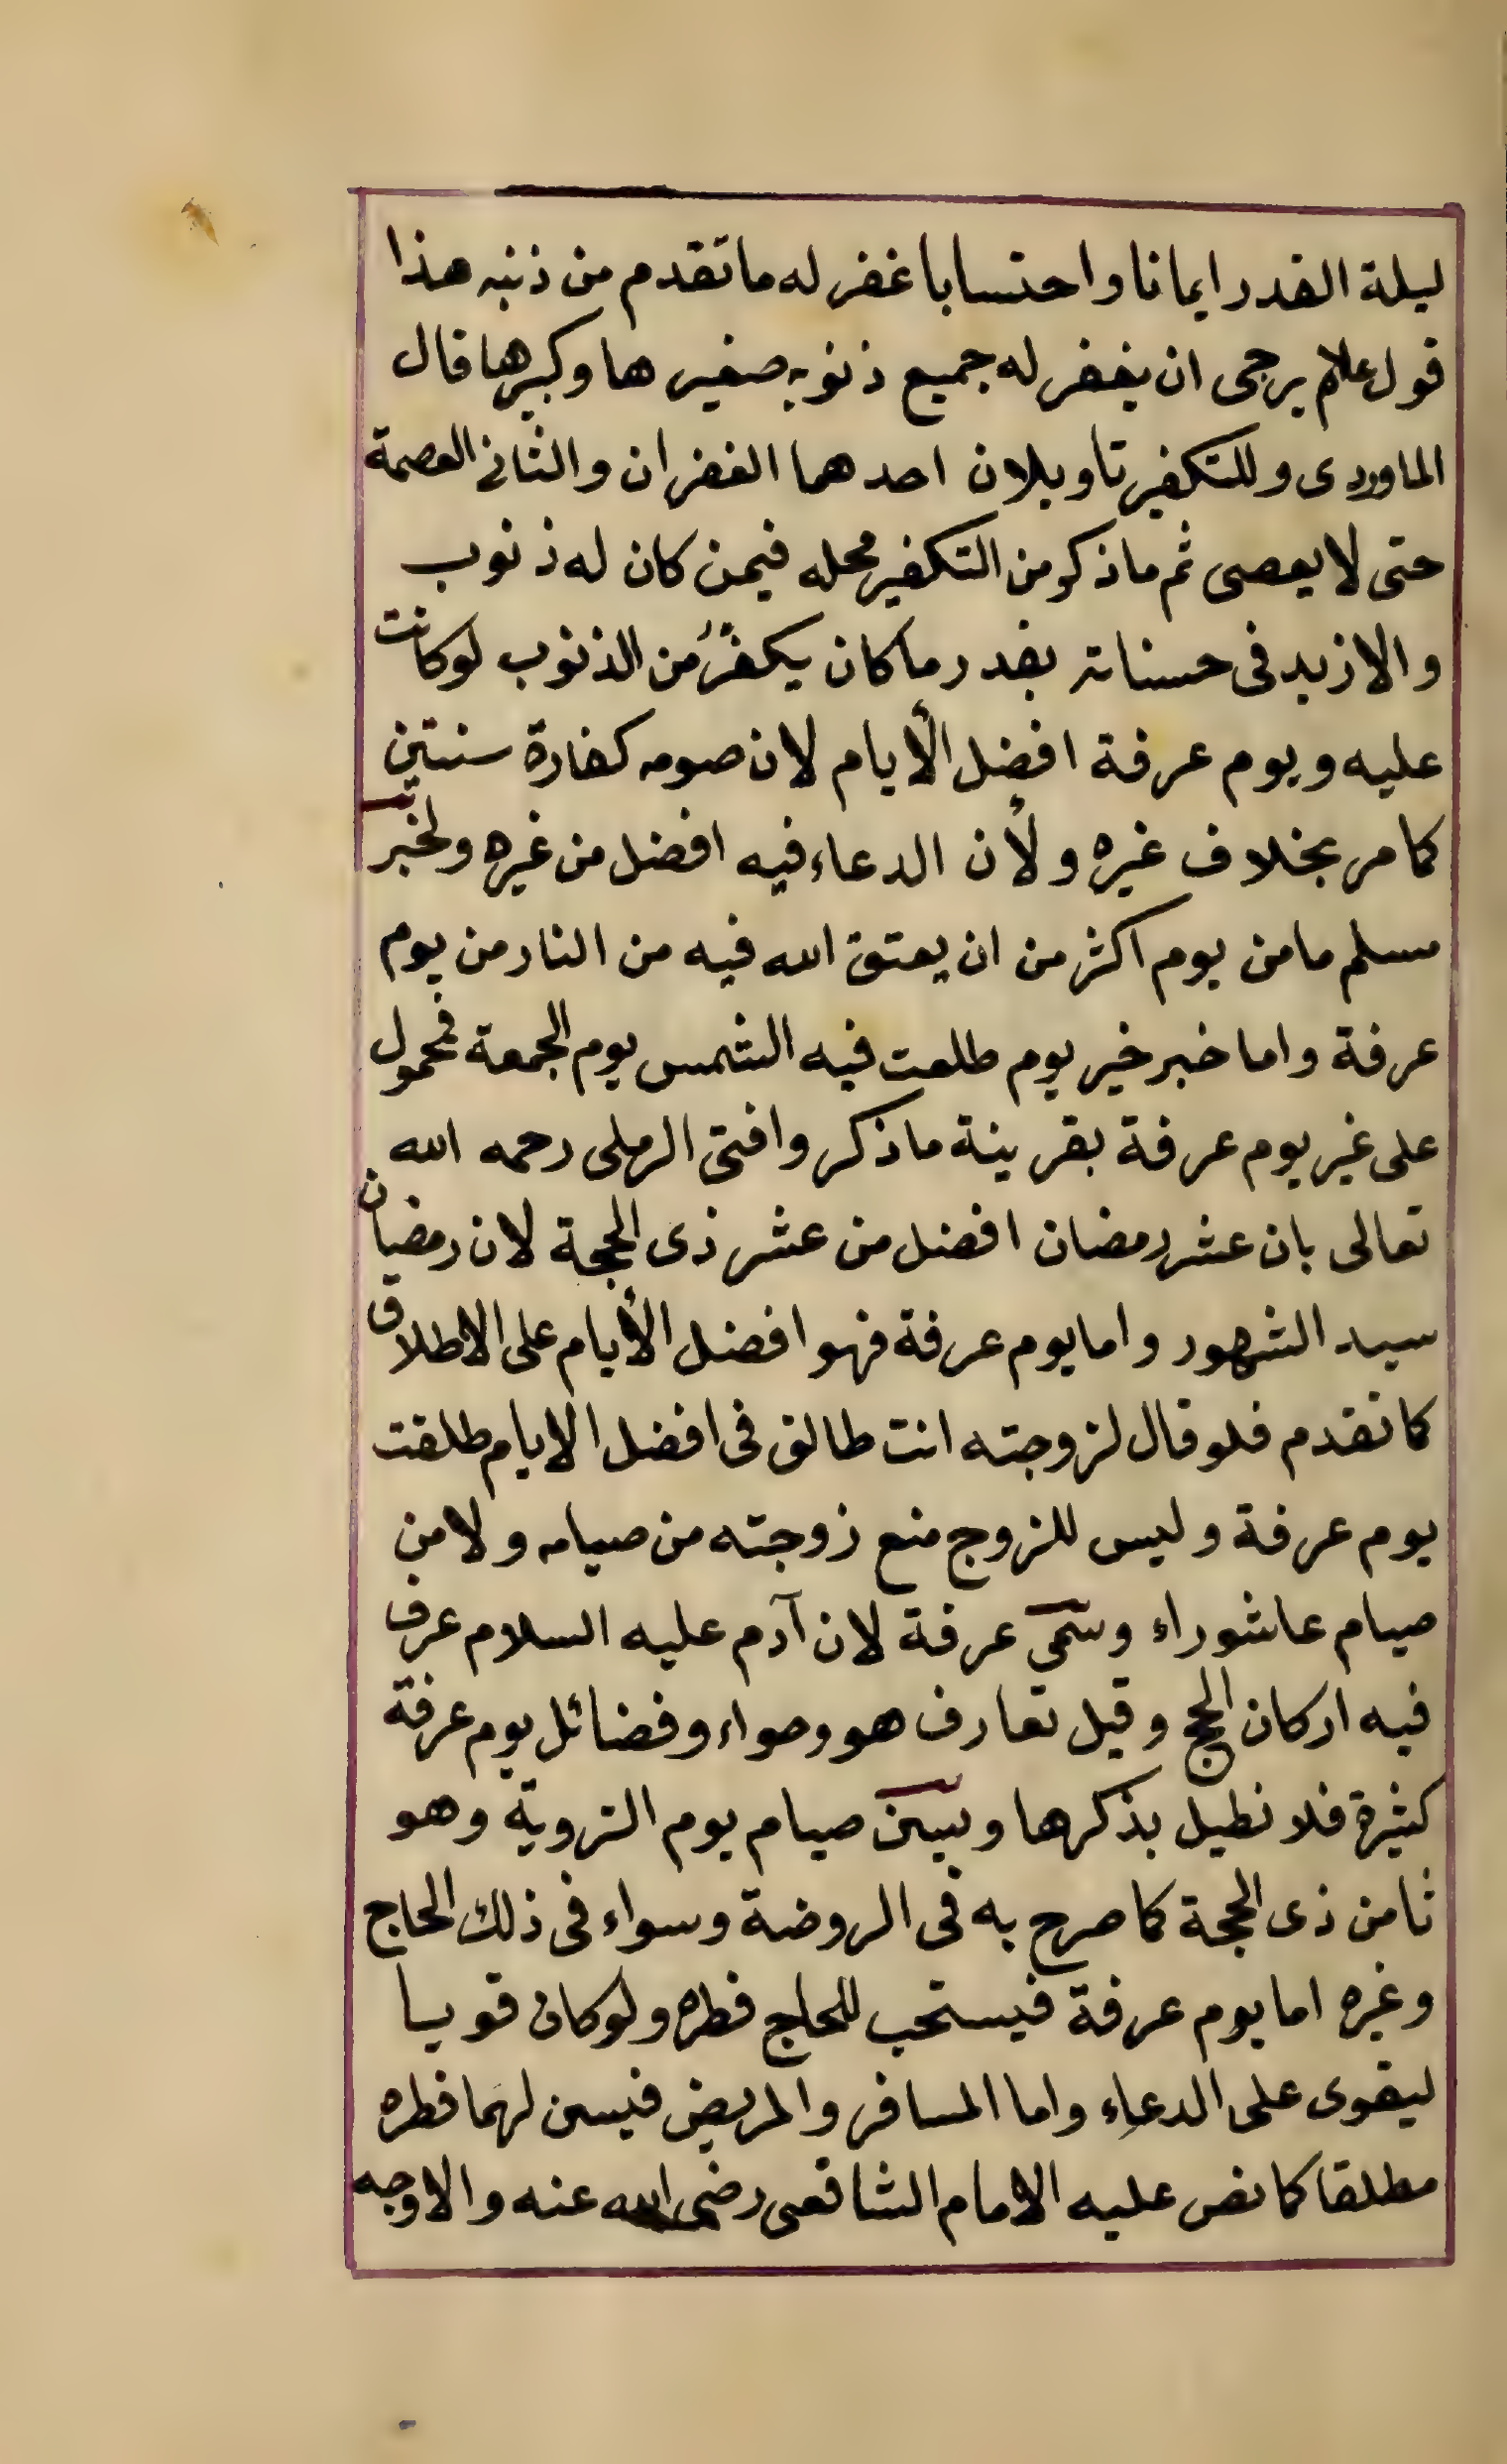 ليلة القدر ايمانا واحتسابا غفر له ما تقدم من ذنبه هذا
قول عام يرجى ان يغفر له جميع ذنوبه صغيرها وكبيرها قال
الماوردى وللتكفير تاويلان احدهما الغفران والثانى العصمة
حتى لا يعصى ثم ما ذكر من التكفير محله فيمن كان له ذنوب
والا زيد فى حسناته بقدر ما كان يكفّر من الذنوب لو كانت
عليه ويوم عرفة افضل الأيام لان صومه كفارة سنتين
كما مر بخلاف غيره ولأن الدعاء فيه افضل من غيره ولخبر
مسلم ما من يوم اكثر من ان يعتق الله فيه من النار من يوم
عرفة واما خبر خير يوم طلعت فيه الشمس يوم الجمعة فمحمول
على غير يوم عرفة بقرينة ما ذكر وافتى الرملى رحمه الله
تعالى بان عشر رمضان افضل من عشر ذى الحجة لان رمضان
سيد الشهور واما يوم عرفة فهو افضل الأيام على الاطلاق
كما تقدم فلو قال لزوجته انت طالق فى افضل الايام طلقت
يوم عرفة وليس للزوج منع زوجته من صيامه ولا من
صيام عاشوراء وسمى عرفة لان آدم عليه السلام عرف
فيه اركان الحج وقيل تعارف هو وحواء وفضائل يوم عرفة
كثيرة فلا نطيل بذكرها ويسن صيام يوم التروية وهو
ثامن ذى الحجة كما صرح به فى الروضة وسواء فى ذلك الحاج
وغيره اما يوم عرفة فيستحب للحاج فطره ولو كان قويا
ليقوى على الدعاء واما المسافر والمريض فيسن لهما فطره
مطلقا كما نص عليه الامام الشافعى رضى الله عنه والاوجه